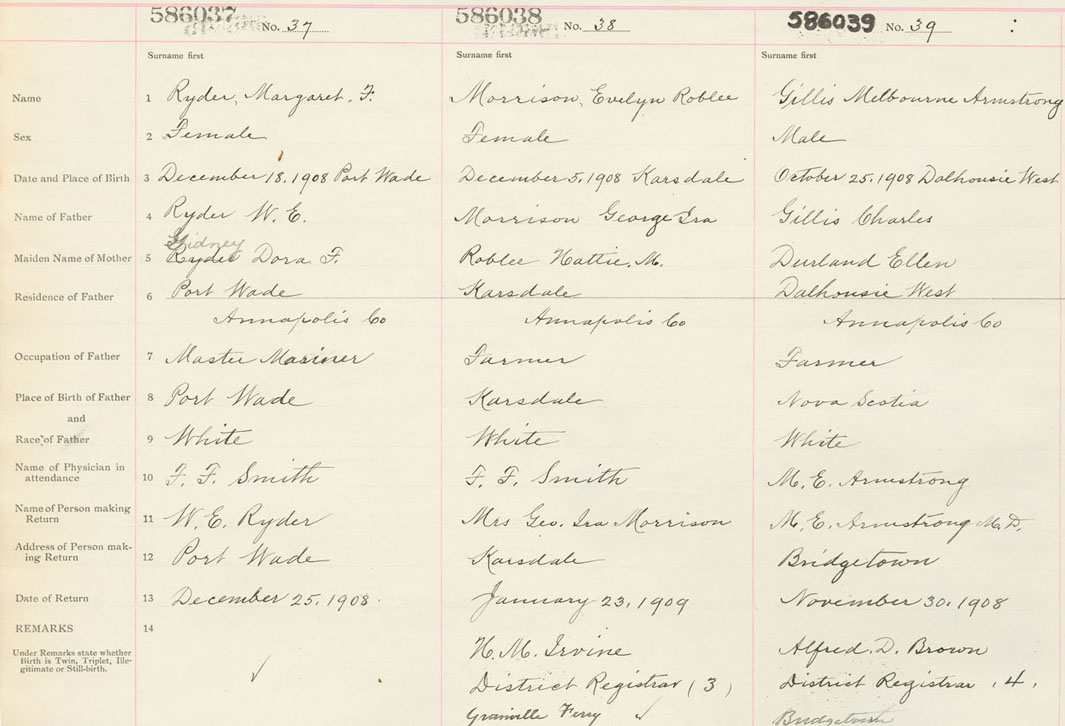 586037 No. 37 586038 No. 38 586039 No. 39
Surname first Surname first Surname first
Name 1 Ryder, Margaret. F. Morrison, Evelyn Roblee Gillis Melbourne Armstrong
Sex 2 Female Female Male
Date and Place of Birth 3 December 18, 1908 Port Wade December 5, 1908 Karsdale October 25, 1908 Dalhousie West
Name of Father 4 Ryder W. E. Morrison George Ira Gillis Charles
Gidney
Maiden Name of Mother 5 Ryder Dora F. Roblee Hattie. M. Durland Ellen
Residence of Father 6 Port Wade Karsdale Dalhousie West
Annapolis Co Annapolis Co Annapolis Co
Occupation of Father 7 Master Mariner Farmer Farmer
Place of Birth of Father 8 Port Wade Karsdale Nova Scotia
and
Race of Father 9 White White White
Name of Physician in
attendance 10 F. F. Smith F. F. Smith M. E. Armstrong
Name of Person making
Return 11 W. E. Ryder Mrs Geo. Ira Morrison M. E. Armstrong M. D.
Address of Person mak-
ing Return 12 Port Wade Karsdale Bridgetown
Date of Return 13 December 25, 1908. January 23, 1909 November 30, 1908
REMARKS 14
Under Remarks state whether
Birth is Twin, Triplet, Ille-
gitimate or Still-birth.
H. M. Irvine Alfred. D. Brown
District Registrar (3) District Registrar . 4 .
Granville Ferry Bridgetown